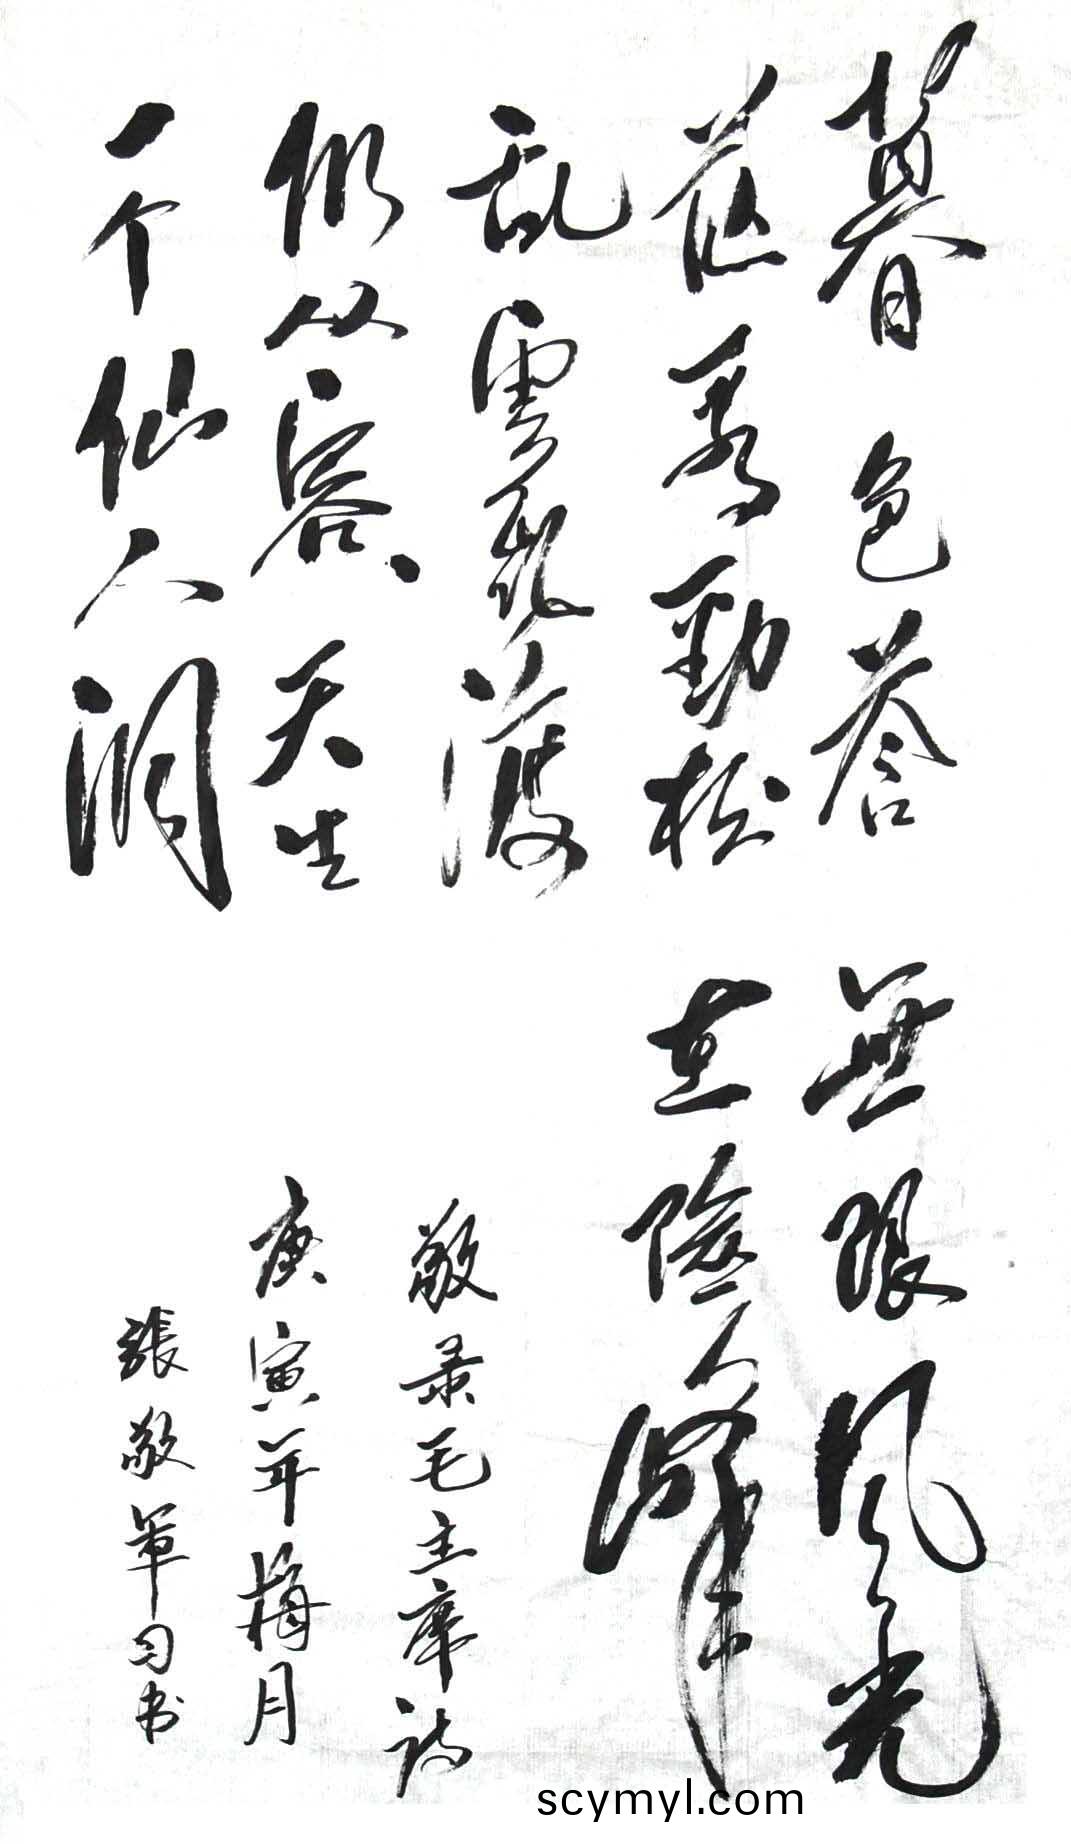 暮色蒼
茫看勁松
乱雲飛渡
仍从容、天生
一个仙人洞
無限风光
在險峰
敬录毛主席诗
庚寅年梅月
張敬軍习书
scymyl.com